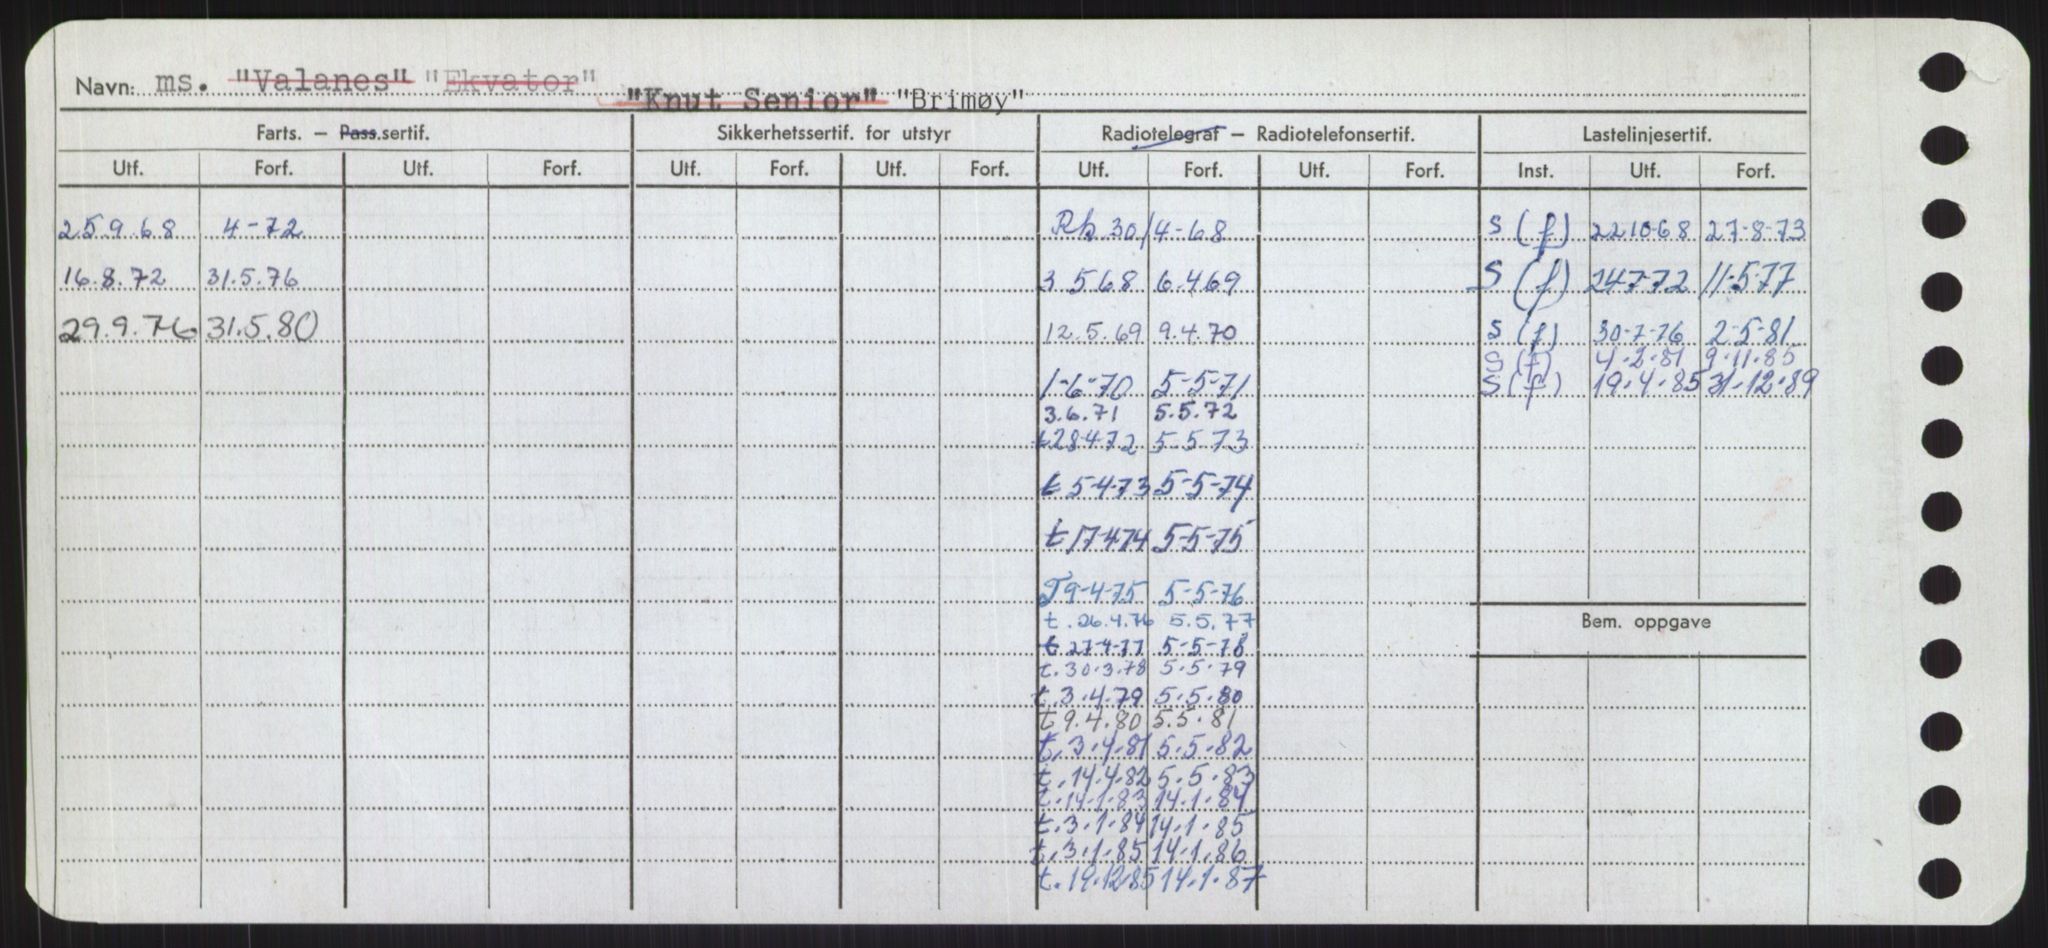 Navn: ms. "Valanes" "Ekvator"
"Knut Senior" "Brimøy"
Farts. – Pass.sertif. Sikkerhetssertif. for utstyr Radiotelegraf – Radiotelefonsertif. Lastelinjesertif.
Utf. Forf. Utf. Forf. Utf. Forf. Utf. Forf. Utf. Forf. Utf. Forf. Inst. Utf. Forf.
25.9.68 4-72 Rk 30/4-68 S (f) 22.10-68 27-8-73
16.8.72 31.5.76 3 5 68 6.4 69 S (f) 24-7-72 11-5-77
29.9.76 31.5.80 12.5.69 9.4.70 S (f) 30-7-76 2-5-81
S (F) 4.2.81 9.11.85
1-6-70 5-5-71 S (f) 19.4.85 31.12.89
3.6.71 5.5.72
t 28 4 72 5 5 73
t 5-4-73 5-5-74
t 17-4-74 5-5-75
T 9-4-75 5-5-76
t. 26.4.76 5.5.77 Bem. oppgave
t 27-4-77 5-5-78
t. 30.3.78 5.5.79
t. 3.4.79 5.5.80
t 9.4.80 5.5.81
t. 3.4.81 5.5.82
t. 14.4.82 5.5.83
t. 14.1.83 14.1.84
t. 3.1.84 14.1.85
t. 3.1.85 14.1.86
t. 19.12.85 14.1.87